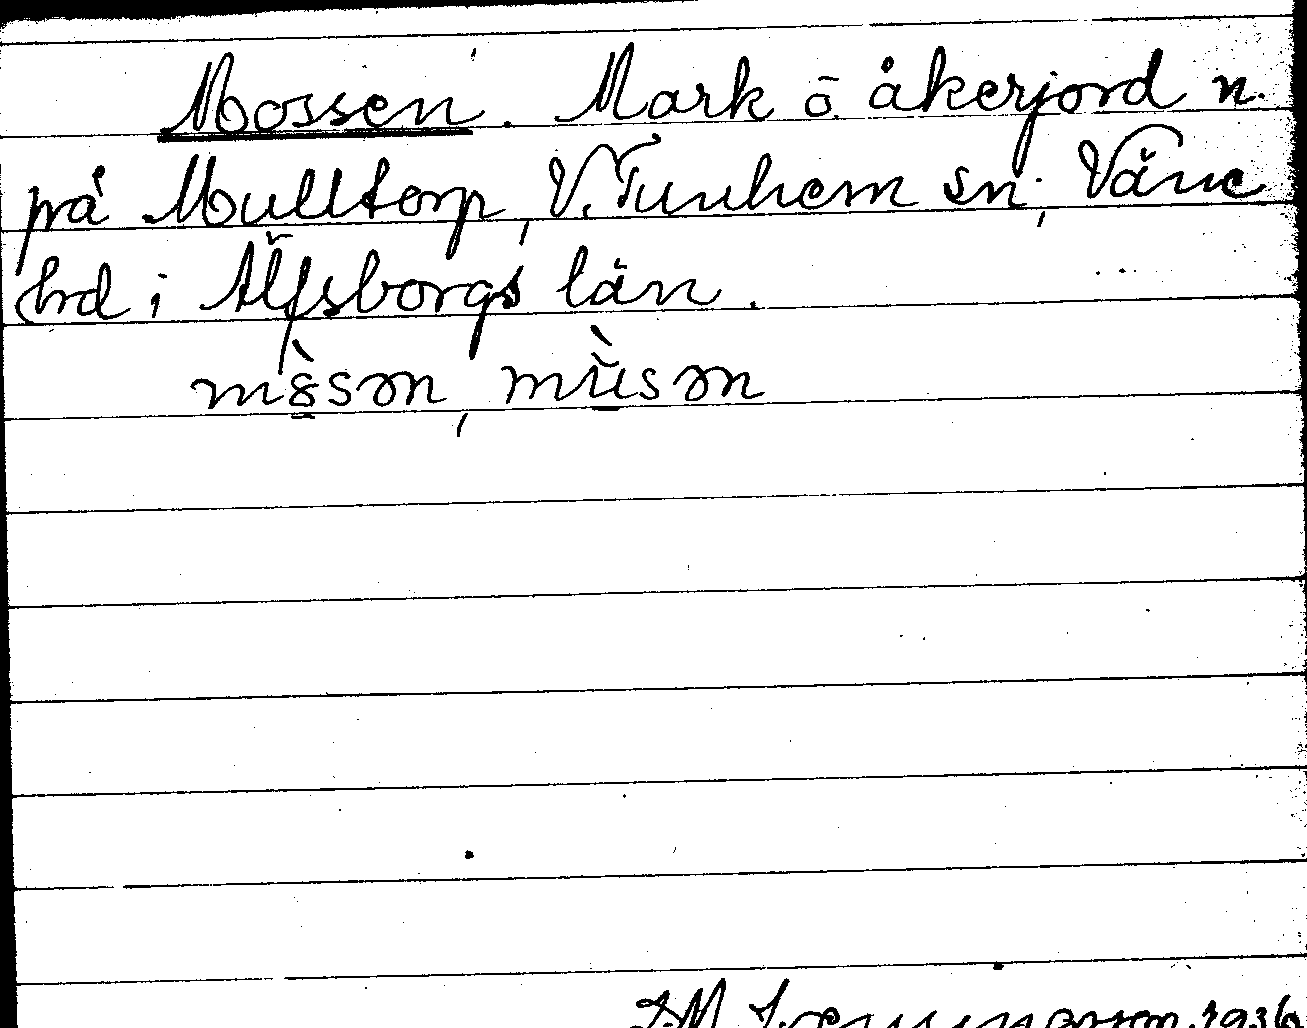 Mossen. Mark o. åkerjord n.
på Mulltorp, V. Tunhem sn, Väne
hd i Älfsborgs län.
1936